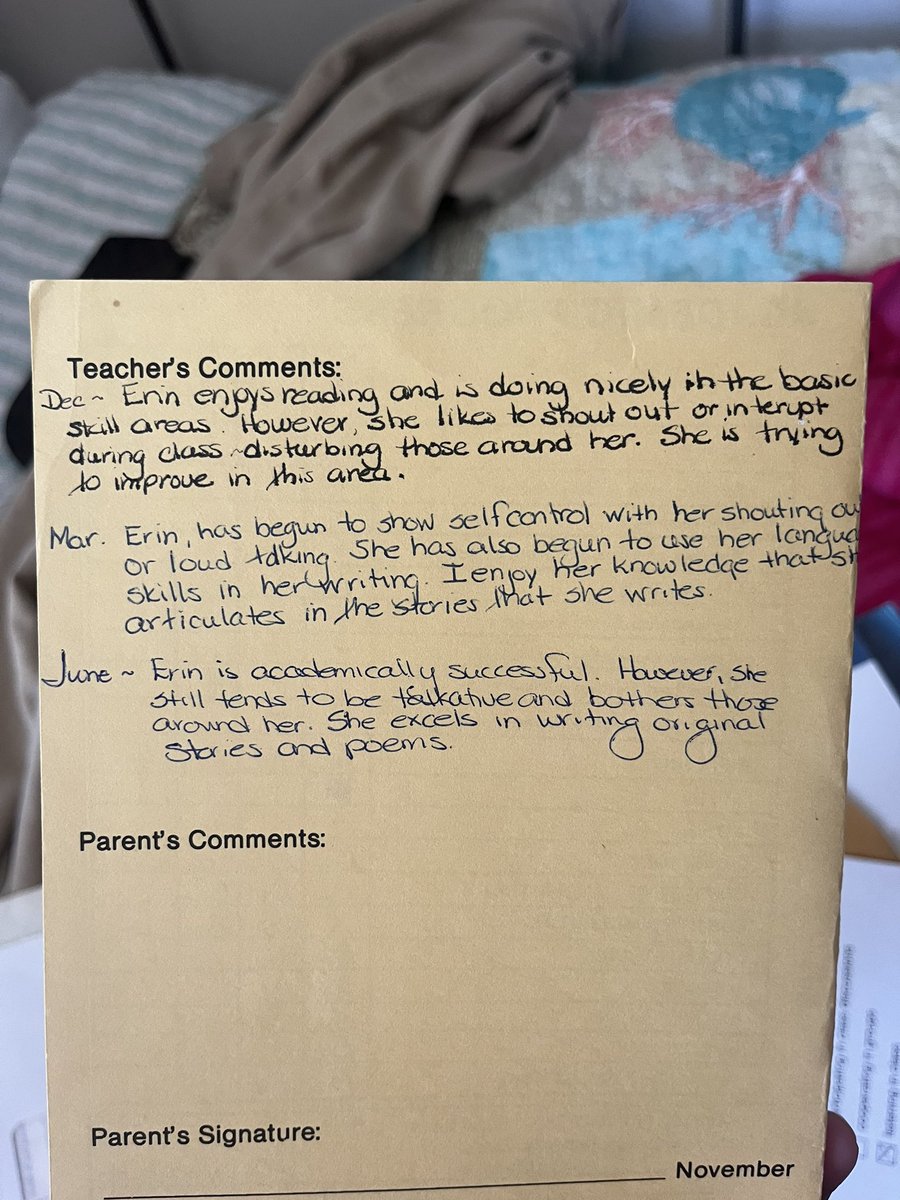 Teacher's Comments:
Dec ~ Erin enjoys reading and is doing nicely in the basic
skill areas. However, she likes to shout out or interupt
during class ~ disturbing those around her. She is trying
to improve in this area.
Mar. Erin, has begun to show selfcontrol with her shouting ou
or loud talking. She has also begun to use her langua
skills in her writing. I enjoy her knowledge that sh
articulates in the stories that she writes.
June ~ Erin is academically successful. However, she
still tends to be talkative and bothers those
around her. She excels in writing original
stories and poems.
Parent's Comments:
Parent's Signature:
November